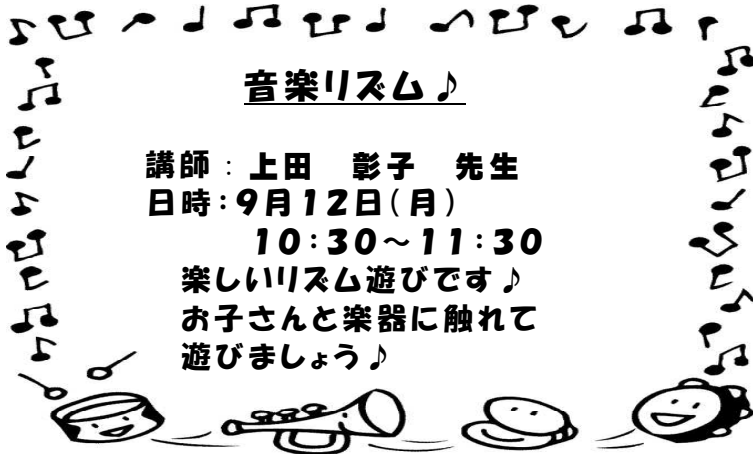 音楽リズム♪
講師：上田　彰子　先生
日時：９月１２日（月）
１０：３０～１１：３０
楽しいリズム遊びです♪
お子さんと楽器に触れて
遊びましょう♪